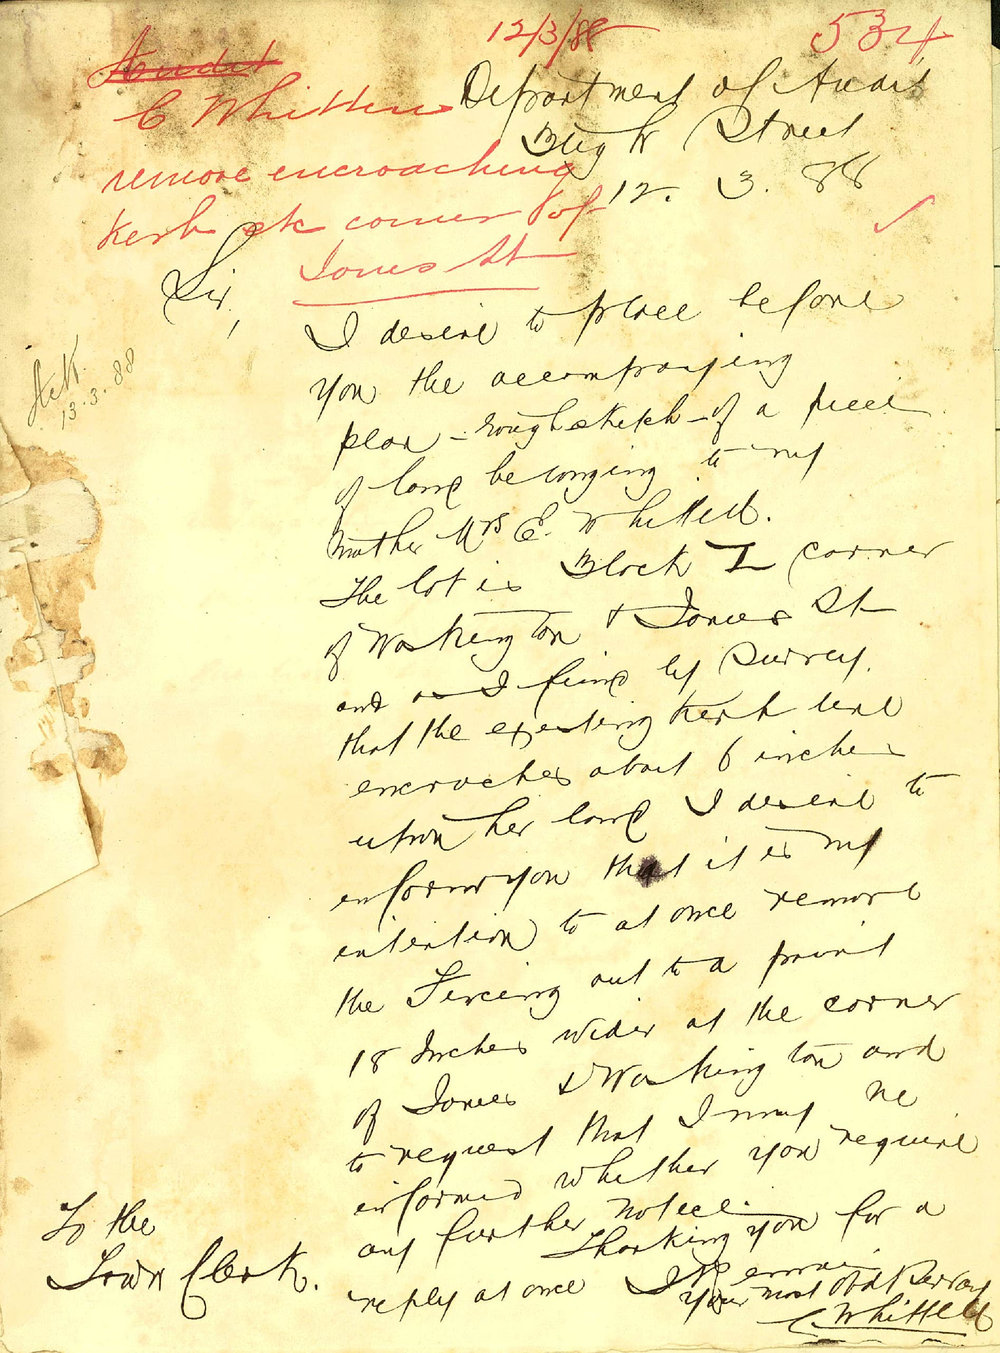 12/3/88
534
Audit
C Whittell
remove encroaching
Kerb at corner of
Jones St
Department of Audit
Bligh Street
12. 3. 88
Ack.
13.3.88
Sir,
I desire to place before
you the accompanying
plan - rough sketch - of a piece
of land belonging to my
mother Mrs E. Whittell.
The lot is Block I corner
of Washington & Jones St
and as I find by survey.
that the existing Kerb line
encroches about 6 inches
upon her land I desire to
inform you that it is my
intention to at once remove
the Fencing out to a point
18 Inches wider at the corner
of Jones & Washington and
to request that I may be
informed whether you require
any further notice.
Thanking you for a
reply at once I remain
Your most Obdt Servant
C. Whittell
To the
Town Clerk.